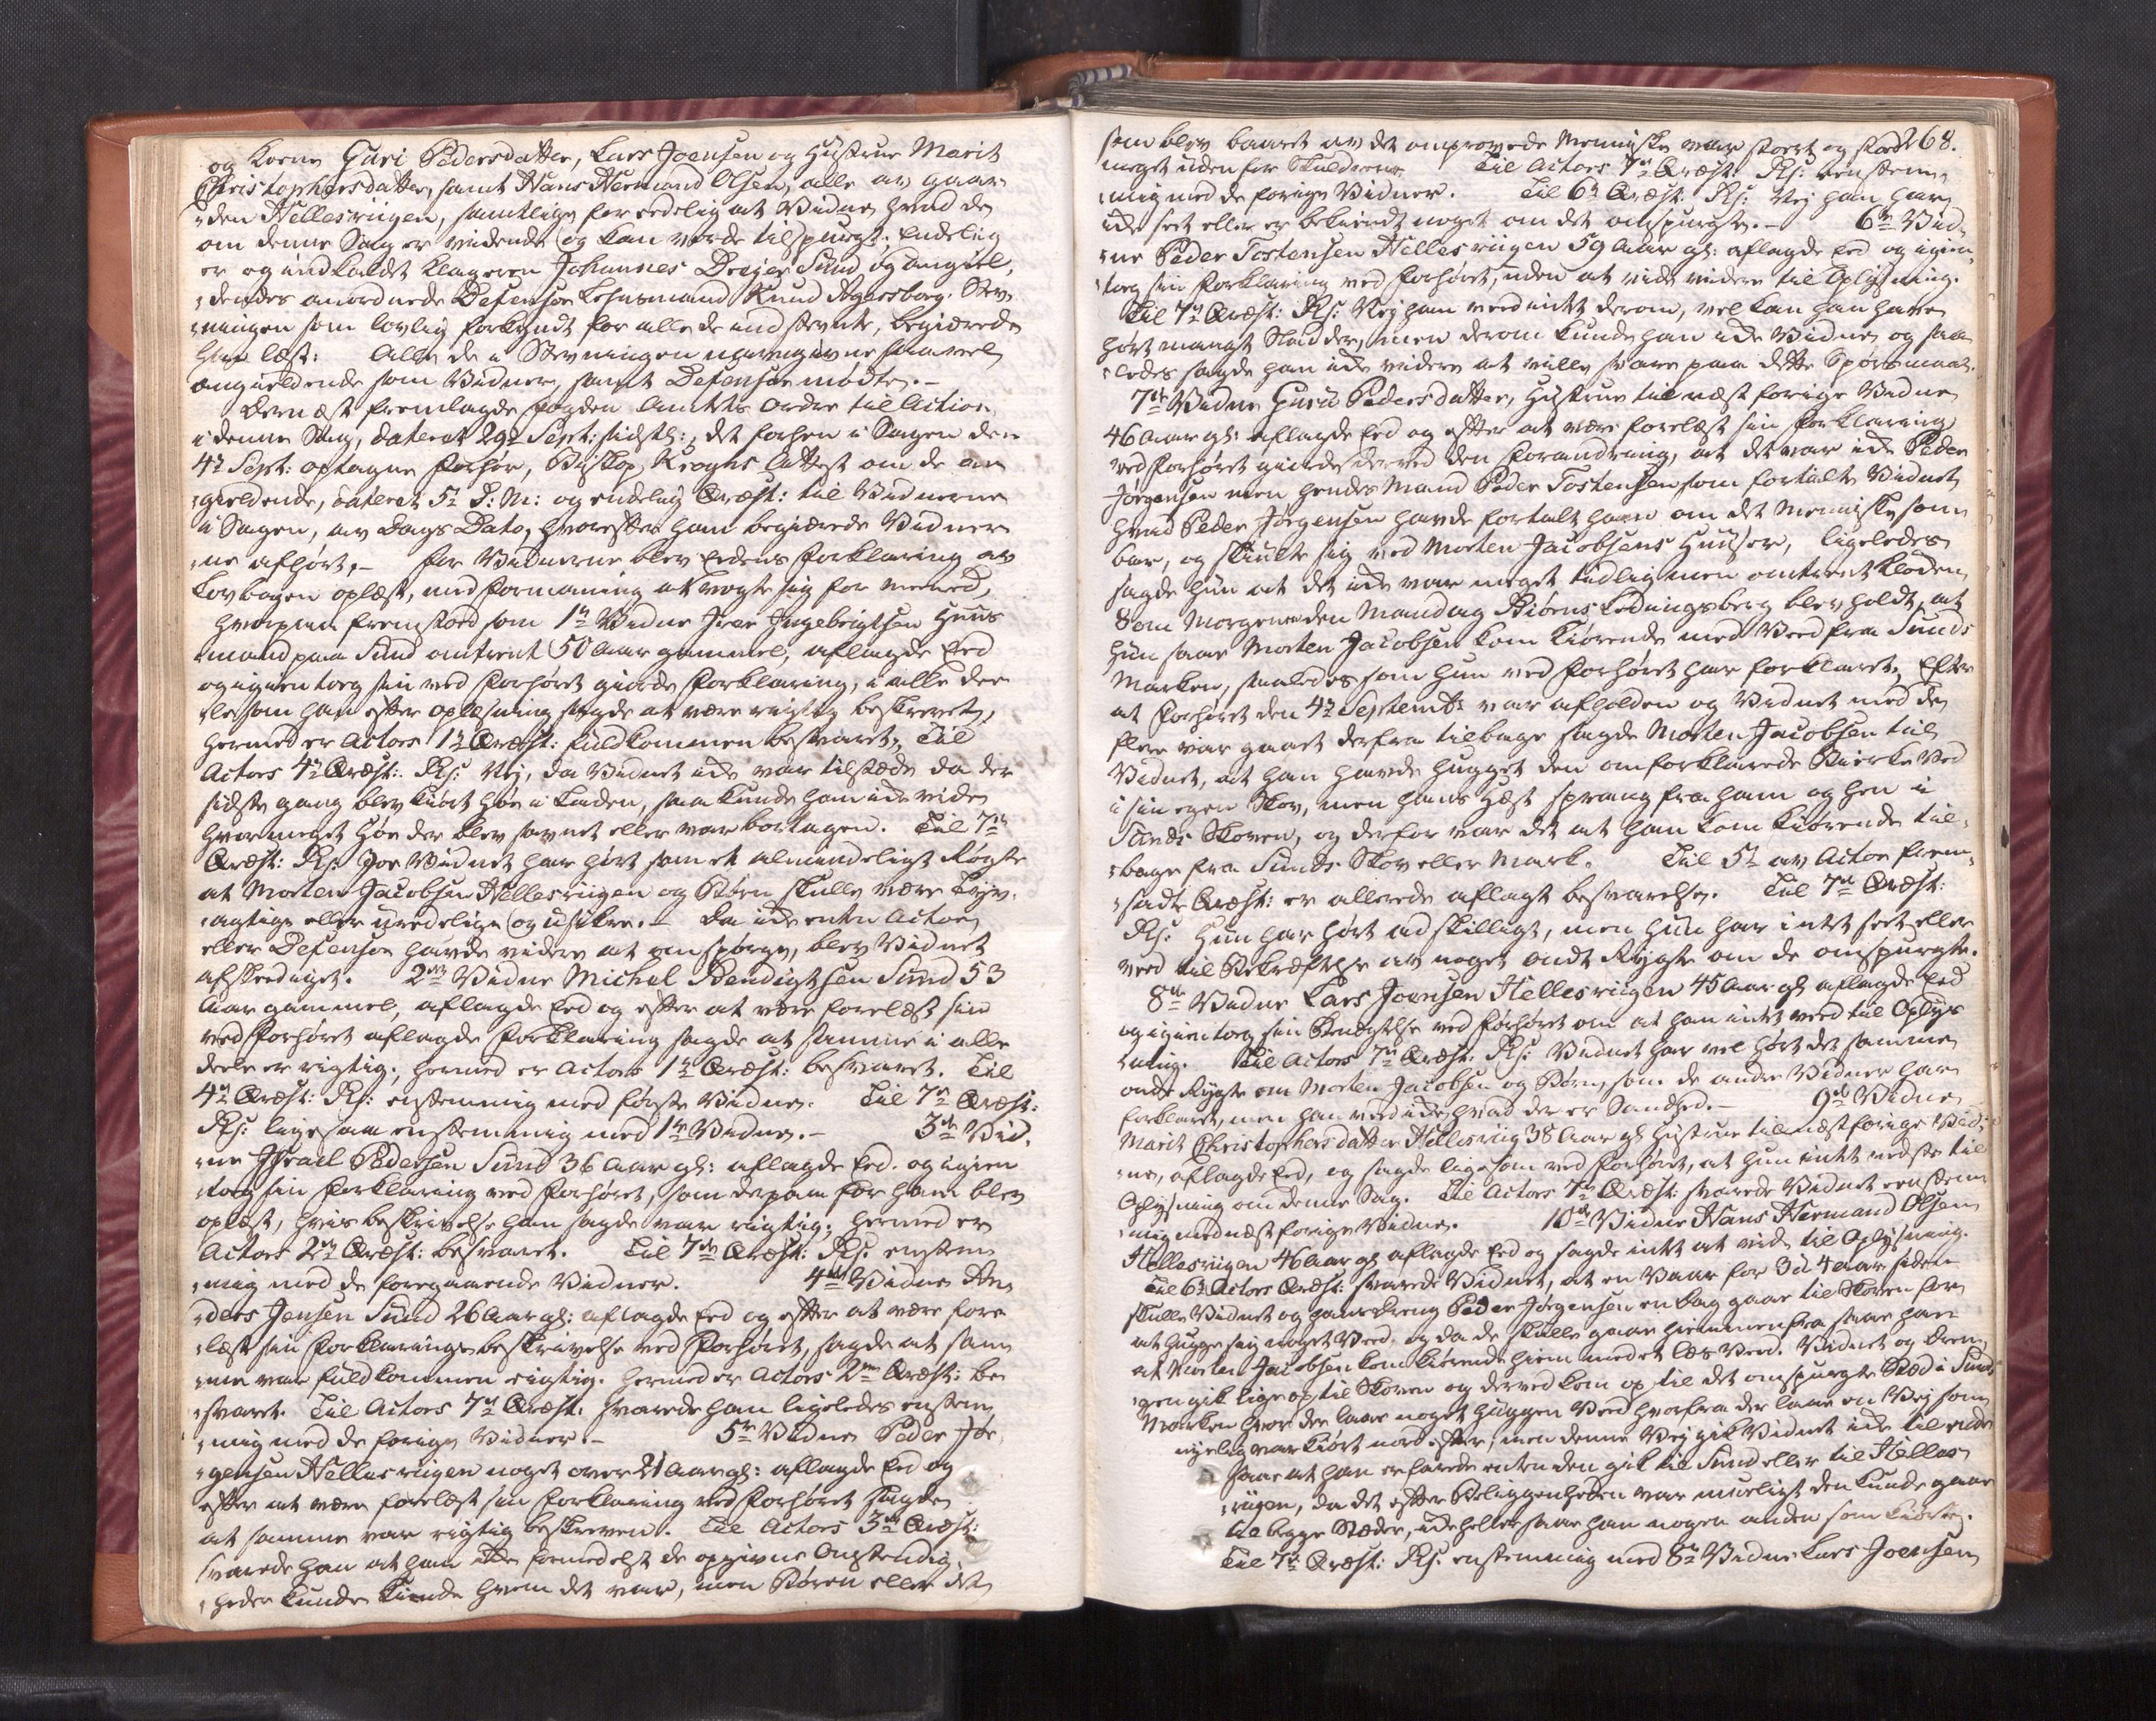 og Kone Guri Pedersdatter, Lars Joensen og Hustrue Marit
Christophersdatter, samt Hans Hermand Olsen, alle av Gaar-
den Hellesviigen, samtlige for eedelig at Vidne hvad de
om denne Sag er vidende og kan vorde tilspurgt. Endelig
er og indkaldet Klageren Johannes Dreyer Sund og angiel-
dendes anordnede Defensor Lehnsmand Knud Aggersborg. Stev-
ningen som lovlig forkyndt for alle de indstevnte, begiærede
han læst: Alle de i Stevningen navngivne saavel
angieldende som Vidner, samt Defensor mødte. -
Dernæst fremlagde Fogden Amtets Ordre til Action
i denne Sag, dateret 29d Sept: sidstl:, det forhen i Sagen den
4d Sept: optagne Forhør, Biskop Kroghs Attest om de an-
gieldende, dateret 5d D: M: og endelig Qvæst: til Vidnerne
i Sagen, av Dags Dato, hvorefter han begiærede Vidner-
ne afhørt. - For Vidnerne blev Eedens Forklaring av
Lovbogen oplæst, med Formaning at vogte sig for Meened,
hvorpaa fremstod som 1te Vidne Iver Ingebrigtsen Huus-
mand paa Sund omtrent 50 Aar gammel, aflagde Eed
og igientog sin ved Forhøret giorde Forklaring, i alle Dee-
le som han efter Oplæsning sagde at være rigtig beskrevet,
hermed er Actors 1te Qvæst: fuldkommen besvaret. Til
Actors 4de Qvæst: Rs: Nej, da Vidnet icke var tilstæde da der
sidste gang blev kiørt Høe i Laden, saa kunde han icke vide
hvor meget Høe der blev savnet eller var borttagen. Til 7de
Qvæst: Rs: Joe Vidnet har hørt som et almindeligt Rygte
at Morten Jacobsen Hellesviigen og Børn skulle være Tyv-
agtige eller uredelige og usikre. - Da icke enten Actor
eller Defensor havde videre at omspørge, blev Vidnet
afskeediget. 2det Vidne Michel Bendigtsen Sund 53
Aar gammel, aflagde Eed og efter at være forelæst sin
ved Forhøret aflagde Forklaring sagde at samme i alle
Deele er rigtig; hermed er Actors 1te Qvæst: besvaret. Til
4de Qvæst: Rs: enstemmig med første Vidne. Til 7de Qvæst:
Rs: ligesaa enstemmig med 1te Vidne. - 3de Vid-
ne Israel Pedersen Sund 36 Aar gl: aflagde Eed og igien-
tog sin Forklaring ved Forhøret, som derpaa for ham blev
oplæst, hvis beskrivelse han sagde var rigtig; hermed er
Actors 2det Qvæst: besvaret. Til 7de Qvæst: Rs: enstem-
mig med de foregaaende Vidner. 4de Vidne An-
ders Jensen Sund 26 Aar gl: aflagde Eed og efter at være fore-
læst sin Forklarings beskrivelse ved Forhøret, sagde at sam-
me var fuldkommen rigtig. Hermed er Actors 2det Qvæst: be-
svaret. Til Actors 7de Qvæst: svarede han ligeledes enstem-
mig med de forige Vidner. - 5te Vidne Peder Jør-
gensen Hellesviigen noget over 21 Aar gl: aflagde Eed og
efter at være forelæst sin Forklaring ved Forhøret sagde
at samme var rigtig beskreven. Til Actors 3de Qvæst:
svarede han at han icke formedelst de opgivne Omstendig-
heder kunde kiende hvem det var, men Børen eller det
268.
som blev baaret av det omprovede Menniske var stort og stoed
meget uden for Skuldrene. Til Actors 7de Qvæst: Rs: eenstem-
mig med de forige Vidner. Til 6te Qvæst: Rs: Nej han har
icke seet eller er bekiendt noget om det omspurgte. - 6te Vid-
ne Peder Tostensen Hellesviigen 59 Aar gl: aflagde Eed og igien-
tog sin Forklaring ved Forhøret, uden at vide videre til Oplysning.
Til 7de Qvæst: Rs: Nej han veed intet derom, vel kan han have
hørt mangt Sladder, men derom kunde han icke Vidne og saa-
ledes sagde han icke videre at ville svare paa dette Spørsmaal.
7de Vidne Guri Pedersdatter, Hustrue til næst forige Vidne
46 Aar gl: aflagde Eed og efter at være forelæst sin Forklaring
ved Forhøret giorde derved den Forandring, at det var icke Peder
Jørgensen men hendes Mand Peder Tostensen som fortalte Vidnet
hvad Peder Jørgensen havde fortalt ham om det Menniske som
bar, og skiulte sig ved Morten Jacobsens Huuser, ligeledes
sagde hun at det icke var meget tidlig men omtrent Kloken
8 om Morgenen den Mandag Biørns Ledningsberg blev holdt, at
hun saae Morten Jacobsen kom kiørende med Veed fra Sunds
Marken, saaledes som hun ved Forhøret har forklaret. Efter
at Forhøret den 4de Septembr var afholden og Vidnet med de
flere var gaaet derfra tilbage sagde Morten Jacobsen til
Vidnet, at han havde hugget den omforklarede Birke Ved
i sin egen Skov, men hans Hæst sprang fra ham og hen i
Sunds Skoven, og derfor var det at han kom kiørende til-
bage fra Sunds Skov eller Mark. Til 5te av Actor frem-
sadte Qvæst: er allerede aflagt besvarelse. Til 7de Qvæst:
Rs: Hun har hørt adskilligt, men hun har intet seet eller
veed til Bekræftelse av noget ondt Rygte om de omspurgte.
8de Vidne Lars Joensen Hellesviigen 45 Aar gl aflagde Eed
og igientog sin Benegtelse ved Forhøret om at han intet veed til Oplys-
ning. Til Actors 7de Qvæst: Rs: Vidnet har vel hørt det samme
onde Rygte om Morten Jacobsen og Børn, som de andre Vidner har
forklaret, men han veed icke hvad der er Sandhed. - 9de Vidne
Marit Christophersdatter Hellesviig 38 Aar gl Hustrue til næst forige Vid-
ne, aflagde Eed, og sagde ligesom ved Forhøret, at hun intet vidste til
Oplysning om denne Sag. Til Actors 7de Qvæst: svarede Vidnet eenstem-
mig med næst forige Vidne. 10de Vidne Hans Hermand Olsen
Hellesviigen 46 Aar gl aflagde Eed og sagde intet at vide til Oplysning.
Til 6te Actors Qvæst: svarede Vidnet, at en Vaar for 3 à 4 Aar siden
skulle Vidnet og hans Dreng Peder Jørgensen en Dag gaae til Skoven for
at hugge sig noget Veed, og da de skulle gaae hiemmenfra saae han
at Morten Jacobsen kom kiørende hiem med et Læs Veed. Vidnet og Dren-
gen gik lige op til Skoven og derved kom op til det omspurgte Sted i Sunds
Marken hvor der laae noget huggen Veed hvorfra der laae en Vej som
nyelig var kiørt nord efter; men denne Vej gik Vidnet icke til ende
saa at han erfarede enten den gik til Sund eller til Helles-
viigen, da det efter Beliggenheden var mueligt den kunde gaae
til begge Stæder, icke heller saae han nogen anden som kiørte.
Til 7de Qvæst: Rs: enstemmig med 8de Vidne Lars Joensen